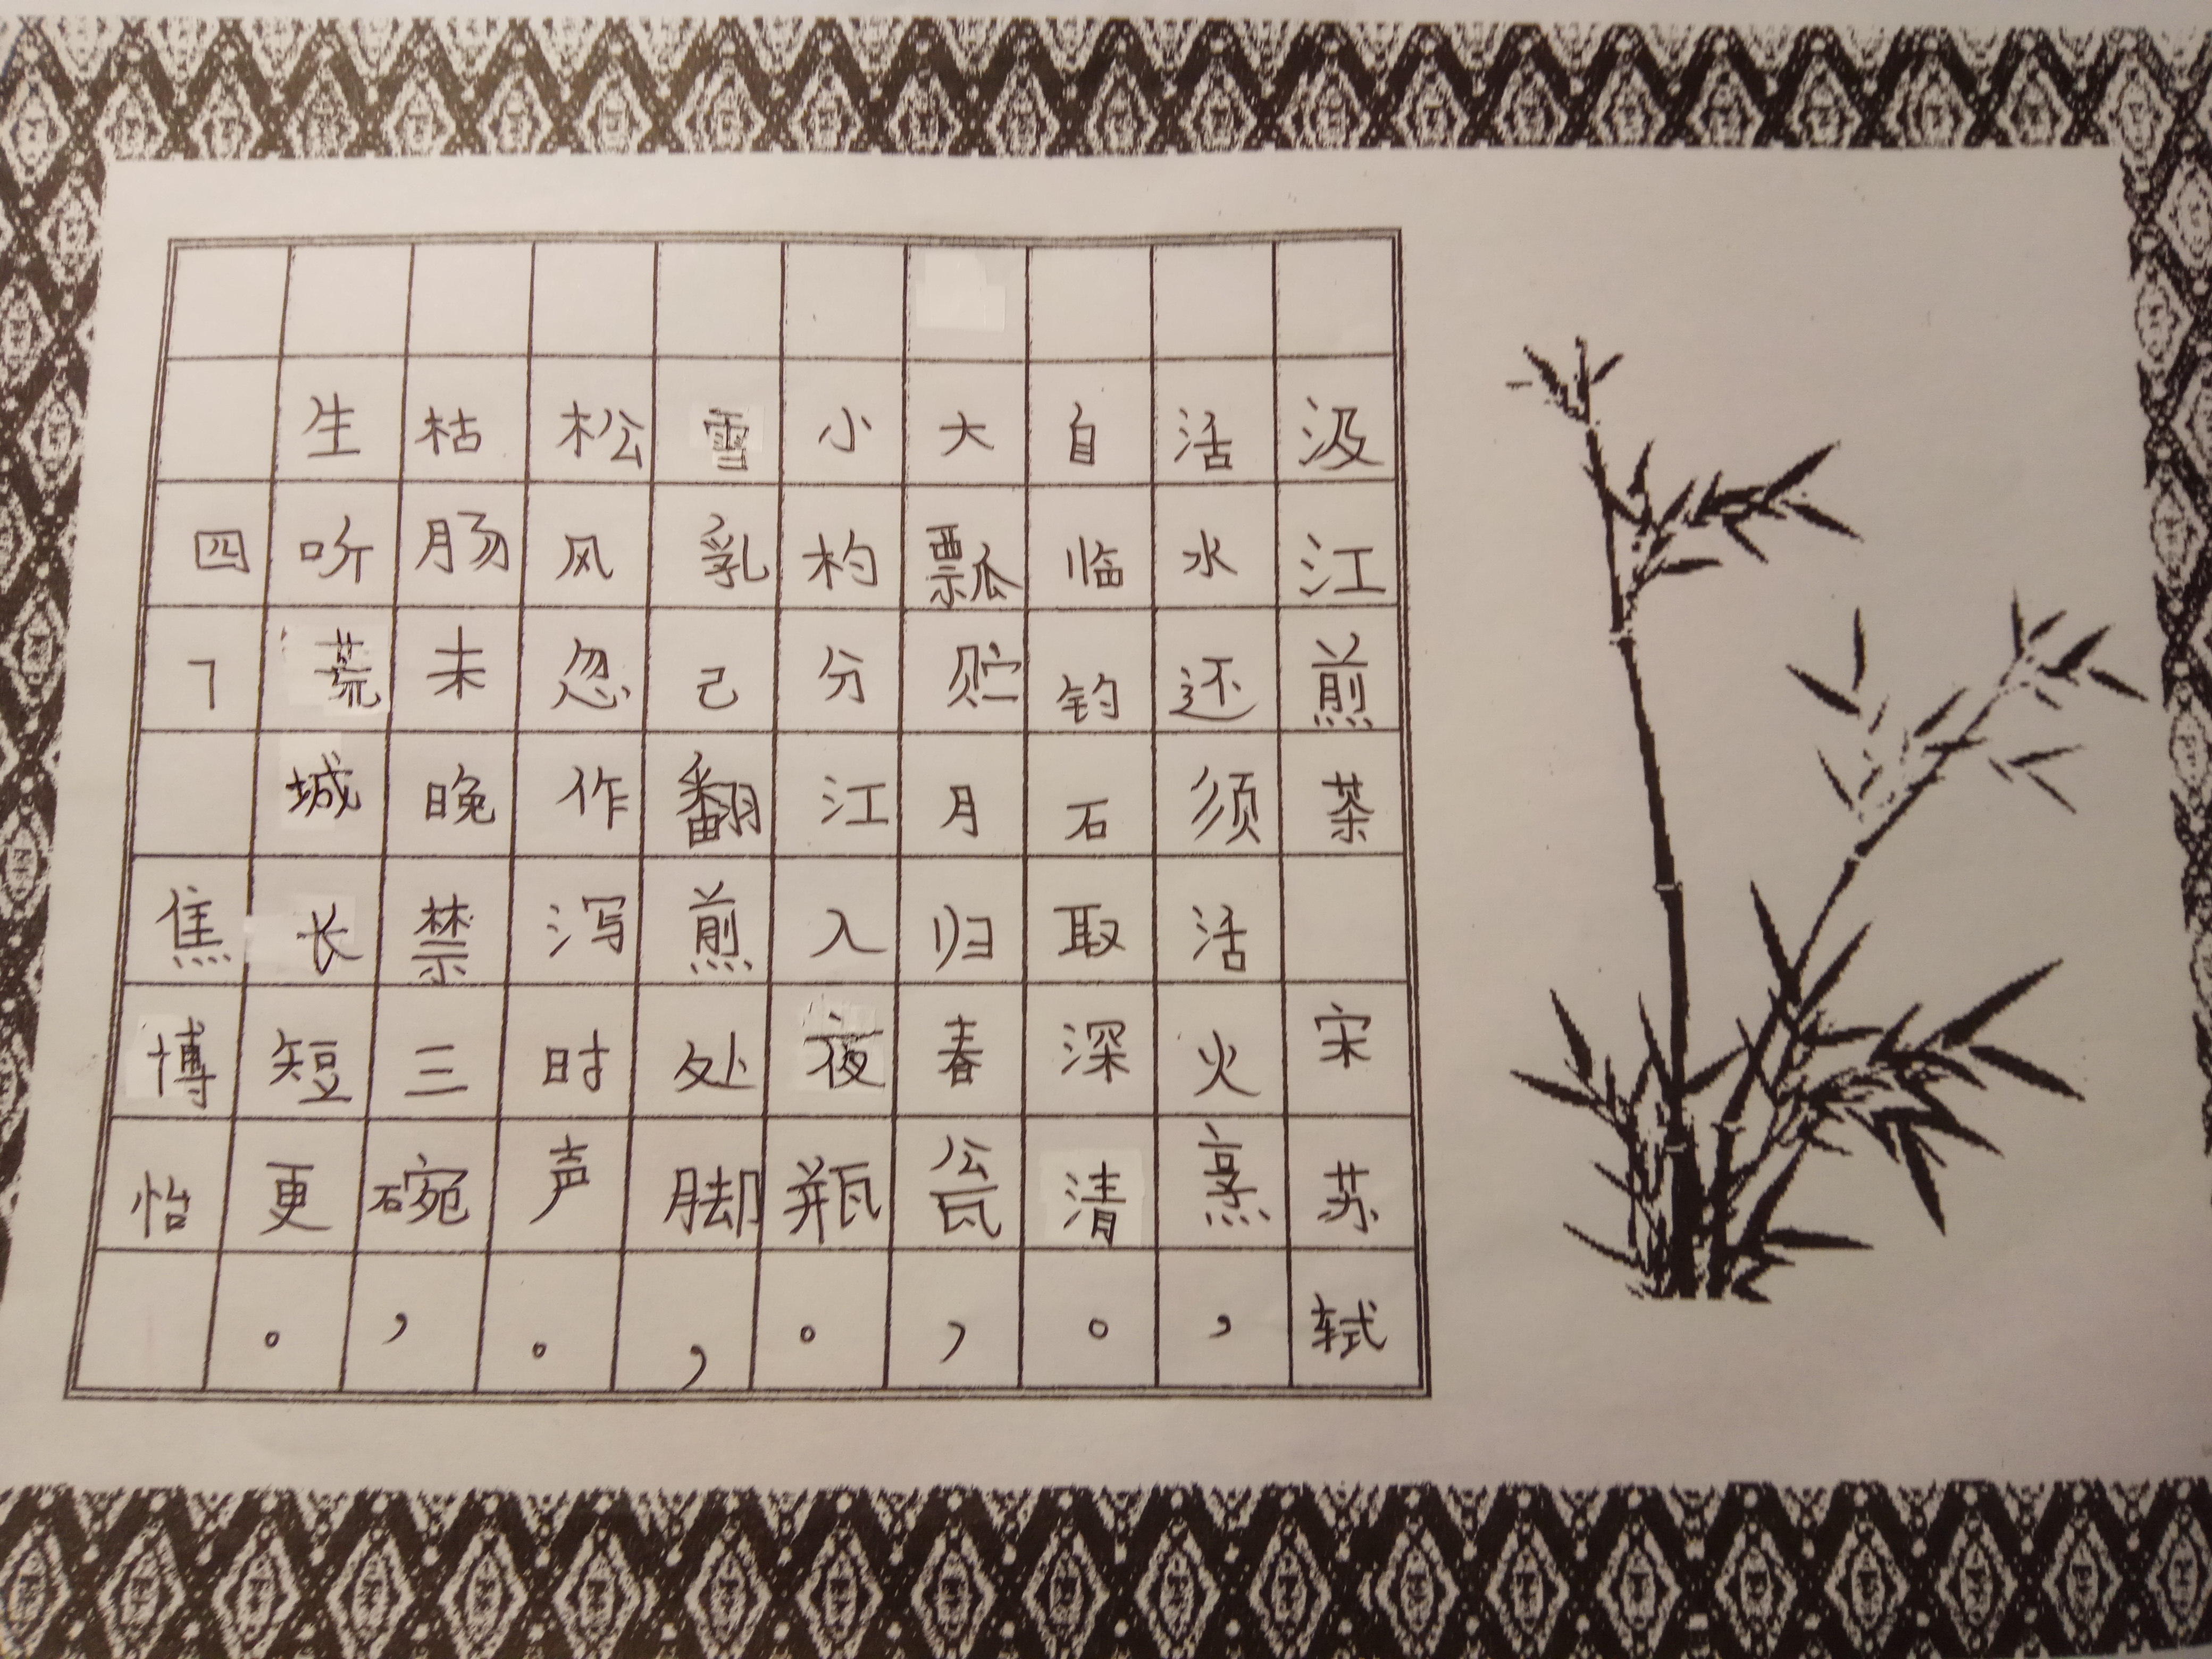 汲江煎茶 宋苏轼
活水还须活火烹，
自临钓石取深清。
大瓢贮月归春瓮，
小杓分江入夜瓶。
雪乳己翻煎处脚，
松风忽作泻时声。
枯肠未晚禁三碗，
生听荒城长短更。
四7 焦博怡